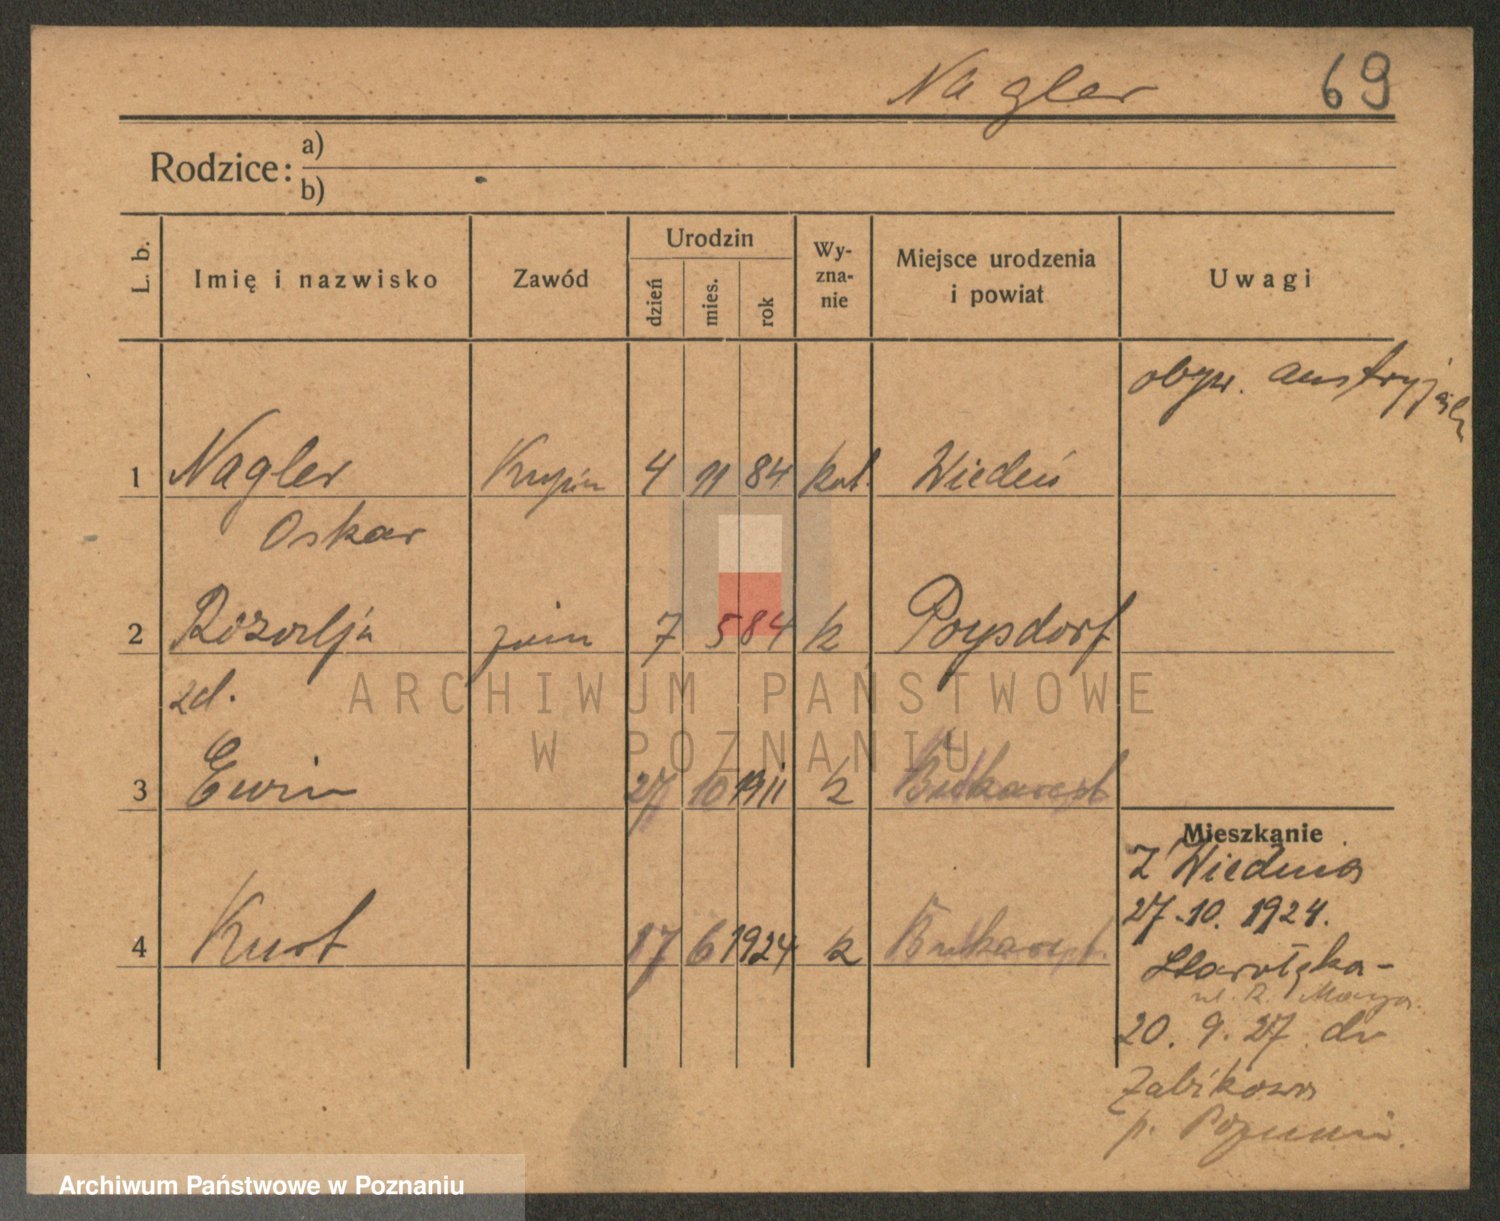 Nagler 69
Rodzice: a)
b)
L. b. Imię i nazwisko Zawód Urodzin dzień mies. rok Wy-zna-nie Miejsce urodzenia i powiat Uwagi
obyw. austryjack
1 Nagler Kupiec 4 11 84 kat. Wiedeń
Oskar
2 Rozalja 7 5 84 k Poysdorf
zd.
3 Erwin 27 10 1911 k Bukareszt
Mieszkanie
Z Wiednia
27.10.1924.
4 Kurt 17 6 1924 k Bukareszt
Starołęka-
ul.
20. 9. 27 do
Żabikowa
p. Poznaniu.
ARCHIWUM PAŃSTWOWE
W POZNANIU
Archiwum Państwowe w Poznaniu